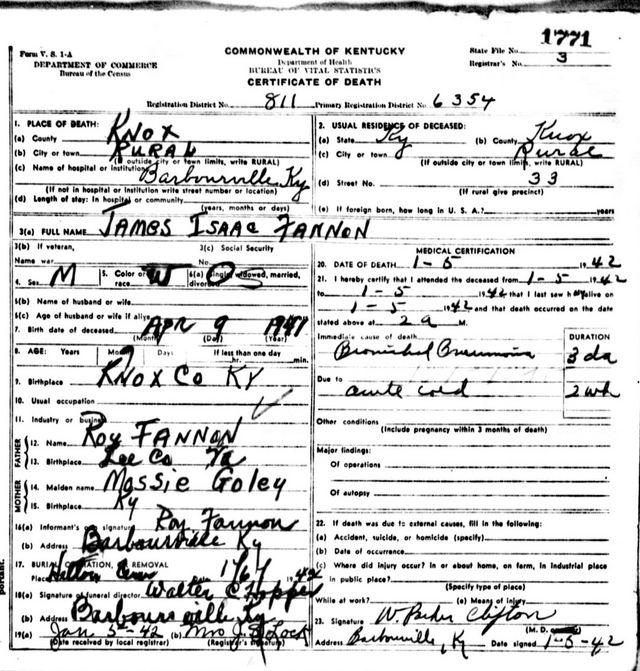 1771
Form V. S. 1-A
DEPARTMENT OF COMMERCE
Bureau of the Census
COMMONWEALTH OF KENTUCKY
Department of Health
BUREAU OF VITAL STATISTICS
CERTIFICATE OF DEATH
State File No.
Registrar's No. 3
Registration District No. 811 Primary Registration District No. 6354
1. PLACE OF DEATH:
(a) County KNOX
(b) City or town RURAL
(If outside city or town limits, write RURAL)
(c) Name of hospital or institution Barbourville, Ky
(If not in hospital or institution write street number or location)
(d) Length of stay: In hospital or community
(years, months or days)
2. USUAL RESIDENCE OF DECEASED:
(a) State Ky (b) County Knox
(c) City or town Rural
(If outside city or town limits, write RURAL)
(d) Street No. 33
(If rural give precinct)
(e) If foreign born, how long in U. S. A.? years
3(a) FULL NAME JAMES ISAAC FANNON
3(b) If veteran,
Name war
3(c) Social Security
No.
4. Sex M 5. Color or race W 6(a) Single, widowed, married, divorced
6(b) Name of husband or wife
6(c) Age of husband or wife if alive
7. Birth date of deceased APR 9 1941
(Month) (Day) (Year)
8. AGE: Years Months 9 Days If less than one day
hr. min.
9. Birthplace KNOX CO KY
10. Usual occupation
11. Industry or business
FATHER
12. Name ROY FANNON
13. Birthplace Lee Co Va
MOTHER
14. Maiden name Mossie Goley
15. Birthplace Ky
16(a) Informant's own signature Roy Fannon
(b) Address Barbourville Ky
17. BURIAL, CREMATION, OR REMOVAL
Place 1/6/ 1942
18(a) Signature of funeral director Walter Chopper
(b) Address Barbourville Ky
19(a) Jan 5-42 (b) Mrs J. S. Lock
(Date received by local registrar) (Registrar's signature)
MEDICAL CERTIFICATION
20. DATE OF DEATH 1-5 1942
21. I hereby certify that I attended the deceased from 1-5 1942
to 1-5 1942 that I last saw h alive on
1-5 1942 and that death occurred on the date
stated above at 2 a M.
Immediate cause of death DURATION
Bronchial Pneumonia 3 da
Due to acute cold 2 wk
Other conditions
(Include pregnancy within 3 months of death)
Major findings:
Of operations
Of autopsy
22. If death was due to external causes, fill in the following:
(a) Accident, suicide, or homicide (specify)
(b) Date of occurrence
(c) Where did injury occur? In or about home, on farm, in industrial place
in public place?
(Specify type of place)
While at work? (e) Means of injury
23. Signature W Parker Clifton
(M. D.
Address Barbourville, Ky Date signed 1-5-42
portant.